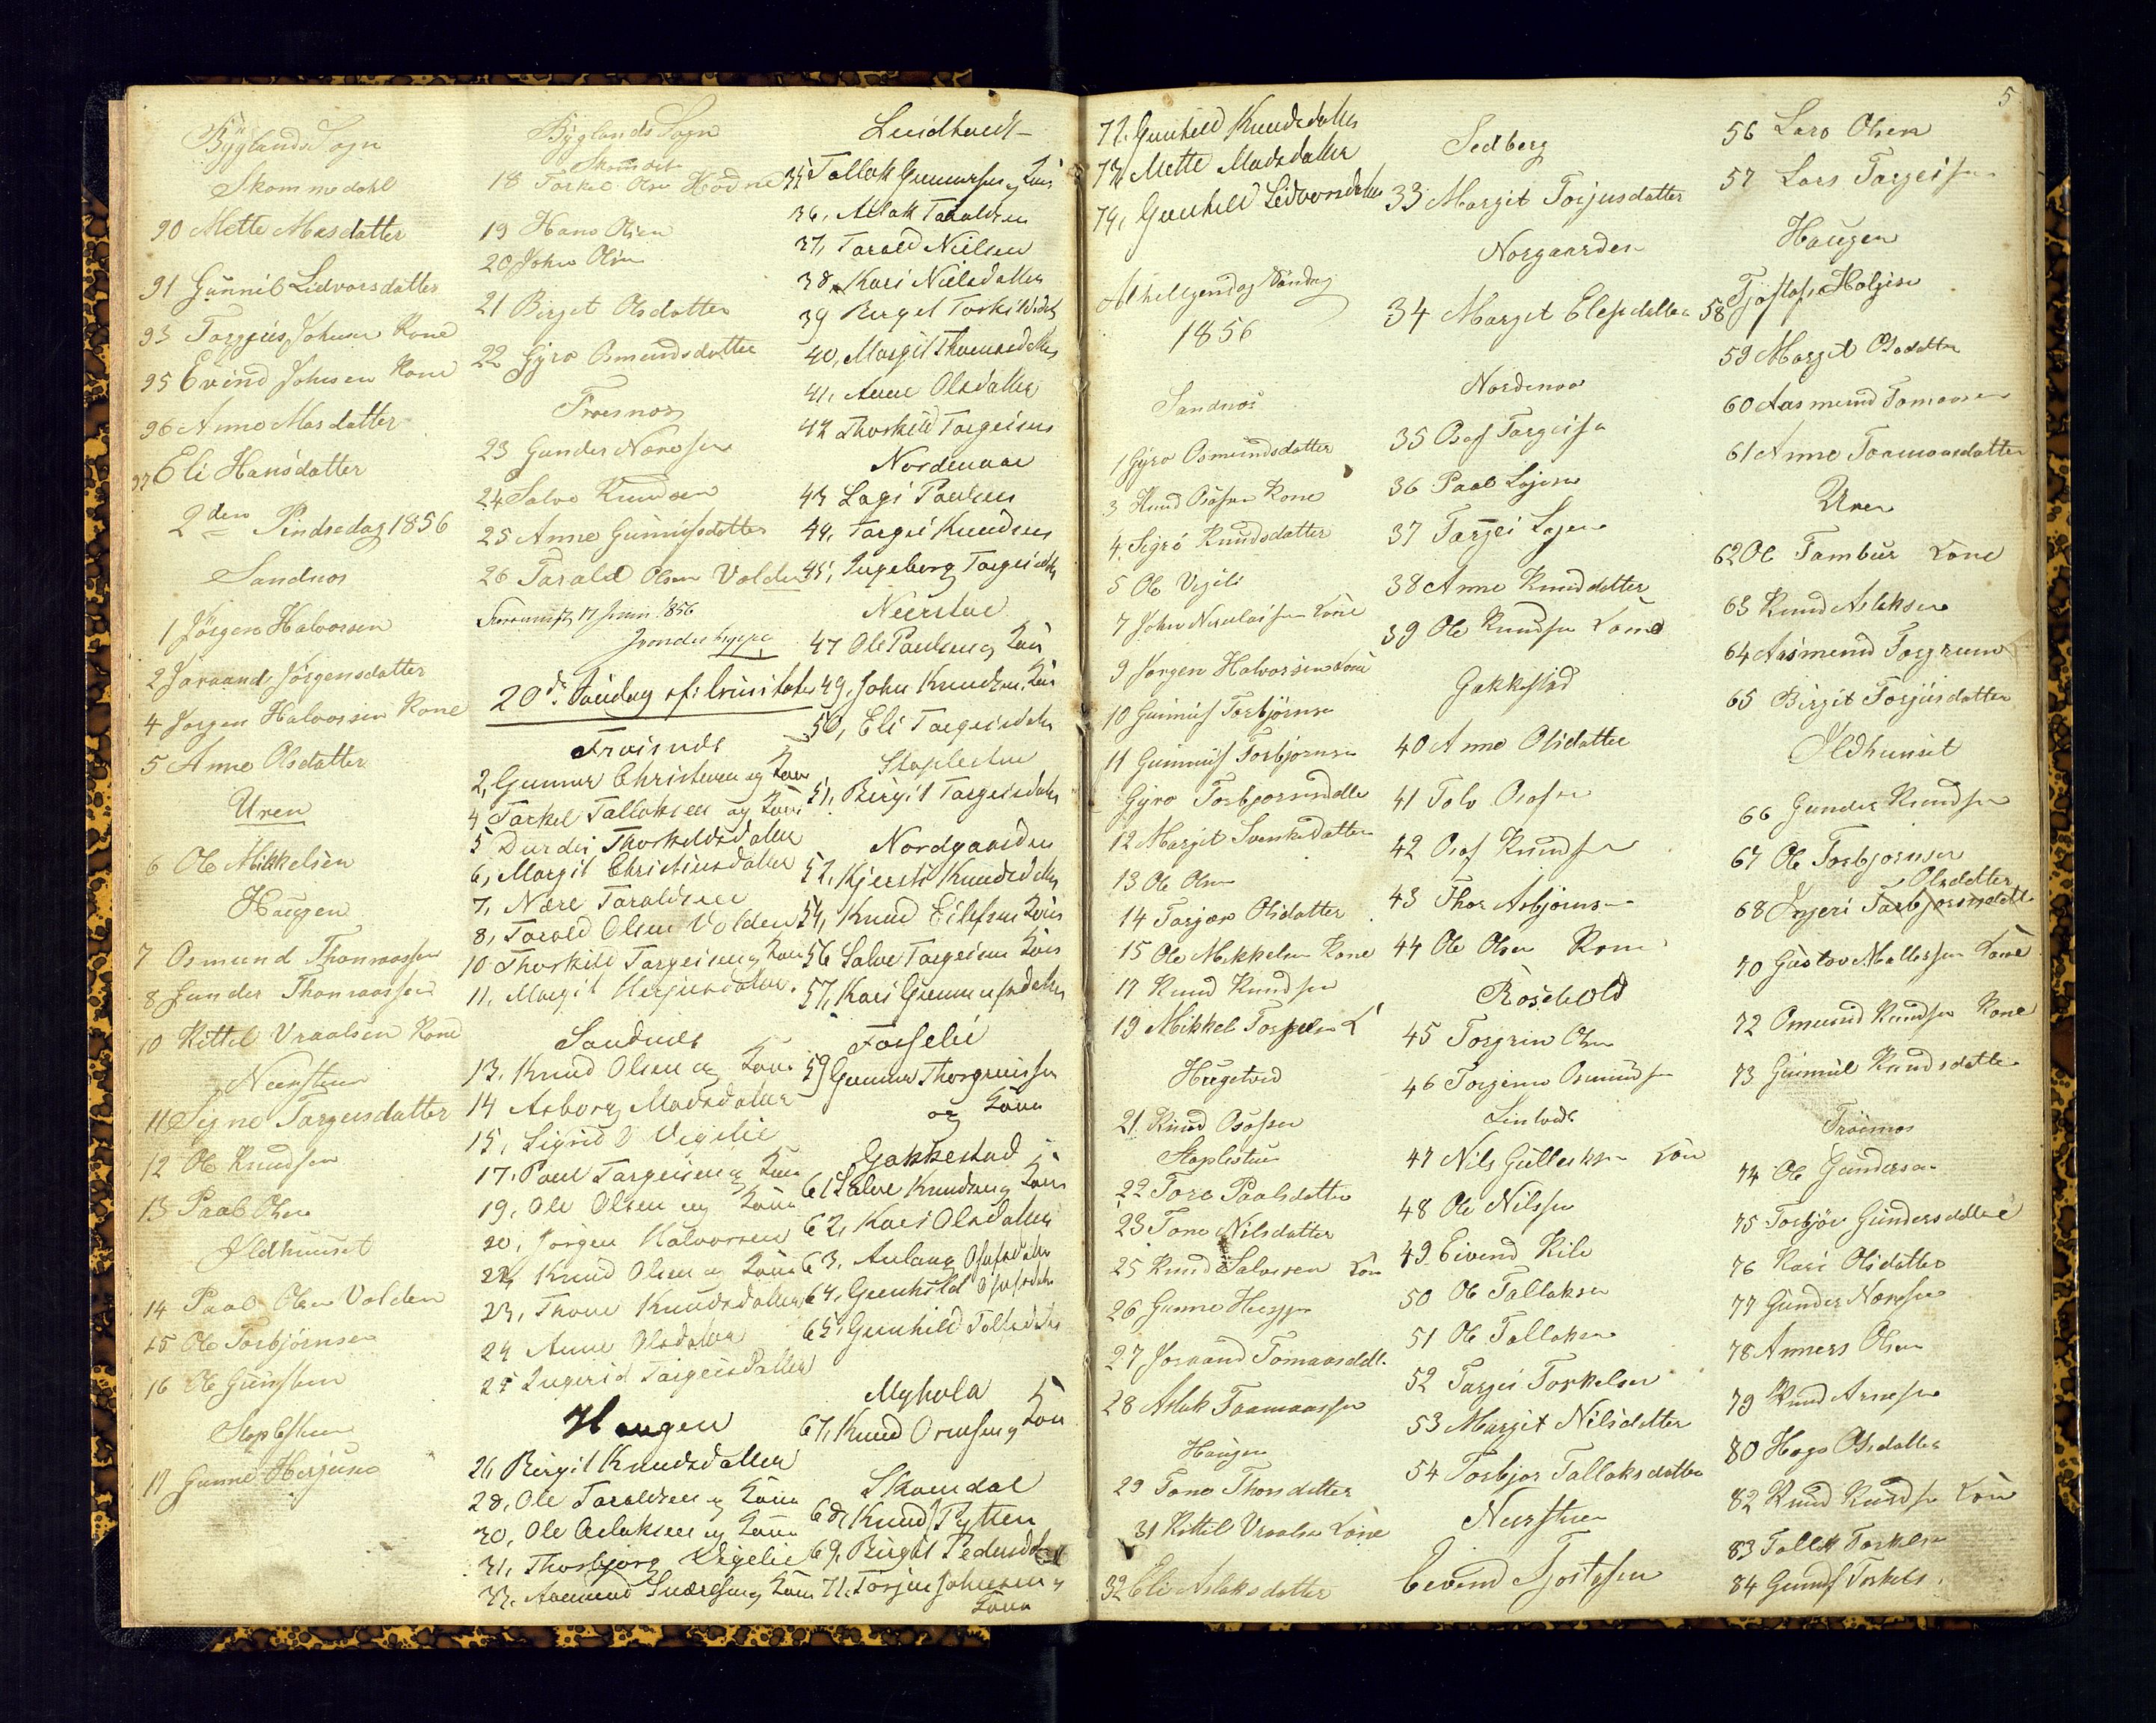 Byglands Sogn
Skommedahl
90 Mette Masdatter
91 Gunnil Lidvorsdatter
93 Torgjus Johnsen Kone
95 Evind Johnsen Kone
96 Anne Masdatter
97 Eli Hansdatter
2den Pindsedag 1856
Sandnes
1 Jørgen Halvorsen
2 Joraand Jørgensdatter
4 Jørgen Halvorsen Kone
5 Anne Olsdatter
Uren
6 Ole Mikkelsen
Haugen
7 Osmund Thommassen
8 Gunder Thommassen
10 Kittel Vraalsen Kone
Neerstuen
11 Signe Targeisdatter
12 Ole Knudsen
13 Paal Olsen
Ildhuuset
14 Paal Olsen Volden
15 Ole Torbjørnsen
16 Ole
Staplestuen
17 Gunne Herjusd
Byglands Sogn
18 Torkel Olsen
19 Hans Olsen
20 John Olsen
21 Birgit Olsdatter
22 Gyro Osmundsdatter
Froisnes
23 Gunder Næresen
24 Salve Knudsen
25 Anne Gunnufsdatter
26 Tarald Olsen Volden
17 Juni 1856
20de Søndag ef: Trinitatis
Froisnes
2, Gunnar Christensen og Kone
4 Torkel Tallaksen og Kone
5 Durdei Thorkildsdatter
6, Margit Christensdatter
7, Nære Taraldsen
8, Tarald Olsen Volden
10 Thorkild Targeisen og Kone
11, Margit Herjusdatter
Sandnes
13, Knud Olsen og Kone
14 Asborg Madsdatter
15, Sigrid Vigelie
17, Poul Targeisen og Kone
19, Ole Olsen og Kone
20, Jörgen Halvorsen
22, Knud Olsen og Kone
23, Thone Knudsdatter
24 Anne Olsdatter
25 Ingerid Targeisdatter
Haugen
26, Birgit Knudsdatter
28, Ole Taraldsen og Kone
30, Ole Aslaksen og Kone
31, Thorbjørg Vigelie
33, Aasmund og Kone
35 Tallak Gunnarsen og Kone
36, Aslak Taraldsen
37, Tarald Nielsen
38, Kari Nielsdatter
39 Birgit Torkildsd
40, Margit Thomasdatter
41, Anne Olsdatter
42 Thorkild Targeisen
Nordenaae
43 Lagi Paulsen
44, Targei Knudsen
45, Ingeborg Targeisdtr
Neerstue
47 Ole Paulsen og Kone
49, John Knudsen, Kone
50, Eli Targeisdatter
Staplestue
51, Birgit Targeisdatter
Nordgaarden
52, Kjersti Knudsdatter
54, Knud Eilefsen Kone
56 Salve Targeisen Kone
57, Kari Gunnufsdatter
59 Gunnar Thorgrimsen
og Kone
Gakkestad
61 Salve Knudsen og Kone
62, Kari Olsdatter
63, Anlaug Osufsdatter
64, Gunhild Osufsdatter
65, Gunhild Tolfsdatter
Myhola
67, Knud Ormsen og Kone
Skomdal
68, Knud Pytten
69, Birgit Pedersdatter
71, Torjus Johnsen og
Kone
5
72, Gunhild Knudsdatter
73, Mette Madsdatter
74, Gunhild Lidvorsdatter
Alhelgendag Søndag
1856
Sandnes
1 Gyro Osmundsdatter
3 Knud Osofsen Kone
4 Sigri Knudsdatter
5 Ole Vigeli
7 John Nicolaisen Kone
9 Jørgen Halvorsen Kone
10 Gunnuf Torbjørnsen
11 Gunnuf Torbjørnsen
Gyro Torbjørnsdatter
12 Margit Svenkedatter
13 Ole Olsen
14 Torjær Olsdatter
15 Ole Mikkelsen Kone
17 Knud Knudsen
19 Mikkel K
21 Knud Osofsen
Staplestue
22 Tore Paalsdatter
23 Tone Nilsdatter
25 Knud Salvesen Kone
26 Gunne
27 Joraand Tomaasdatt.
28 Aslak Taamaassen
Haugen
29 Tone Thorsdatter
31 Kittil Vraalsen Kone
32 Eli Aslaksdatter
Sedberg
33 Margit Torjusdatter
Norgaarden
34 Margit Elefsdatter
Nordenaa
35 Osof Targeisen
36 Paal Lajesen
37 Targei Lajesen
38 Anne Knudsdatter
39 Ole Knudsen Kone
Gakkestad
40 Anne Olsdatter
41 Tolv Osofsen
42 Osof Knudsen
43 Thor Asbjørnsen
44 Ole Olsen Kone
45 Torgrim Olsen
46 Osmundsen
47 Nils Gulleksen Kone
48 Ole Nilssen
49 Eivend Kile
50 Ole Tallaksen
51 Ole Tallaksen
52 Targei Torkelsen
53 Margit Nilsdatter
54 Torbjør Tallaksdatter
Neerstuen
Eevend Tjostofsen
56 Lars Olsen
57 Lars Targeisen
Haugen
58 Tjostof Holjesen
59 Margit Olsdatter
60 Aasmund Tomassen
61 Anne Taamaasdatter
Uren
62 Ole Tambur Kone
63 Knud Aslaksen
64 Aasmund Torgrims
65 Birgit Torjusdatter
Ildhuuset
66 Gunder Knudsen
67 Ole Torbjørnsen
Olsdatter
68 Ingeri Torbjørnsdatt
70 Gustov Kone
72 Omund Knudsen Kone
73 Gunnil Knudsdatter
Froisnes
74 Ole Gundersen
75 Torbjør Gundersdatter
76 Kari Olsdatter
77 Gunder Næresen
78 Anners Olsen
79 Knud Arnesen
80 Hæge Olsdatter
82 Knud Knudsen Kone
83 Tallek Torkelsen
84 Gunuf Torkels.